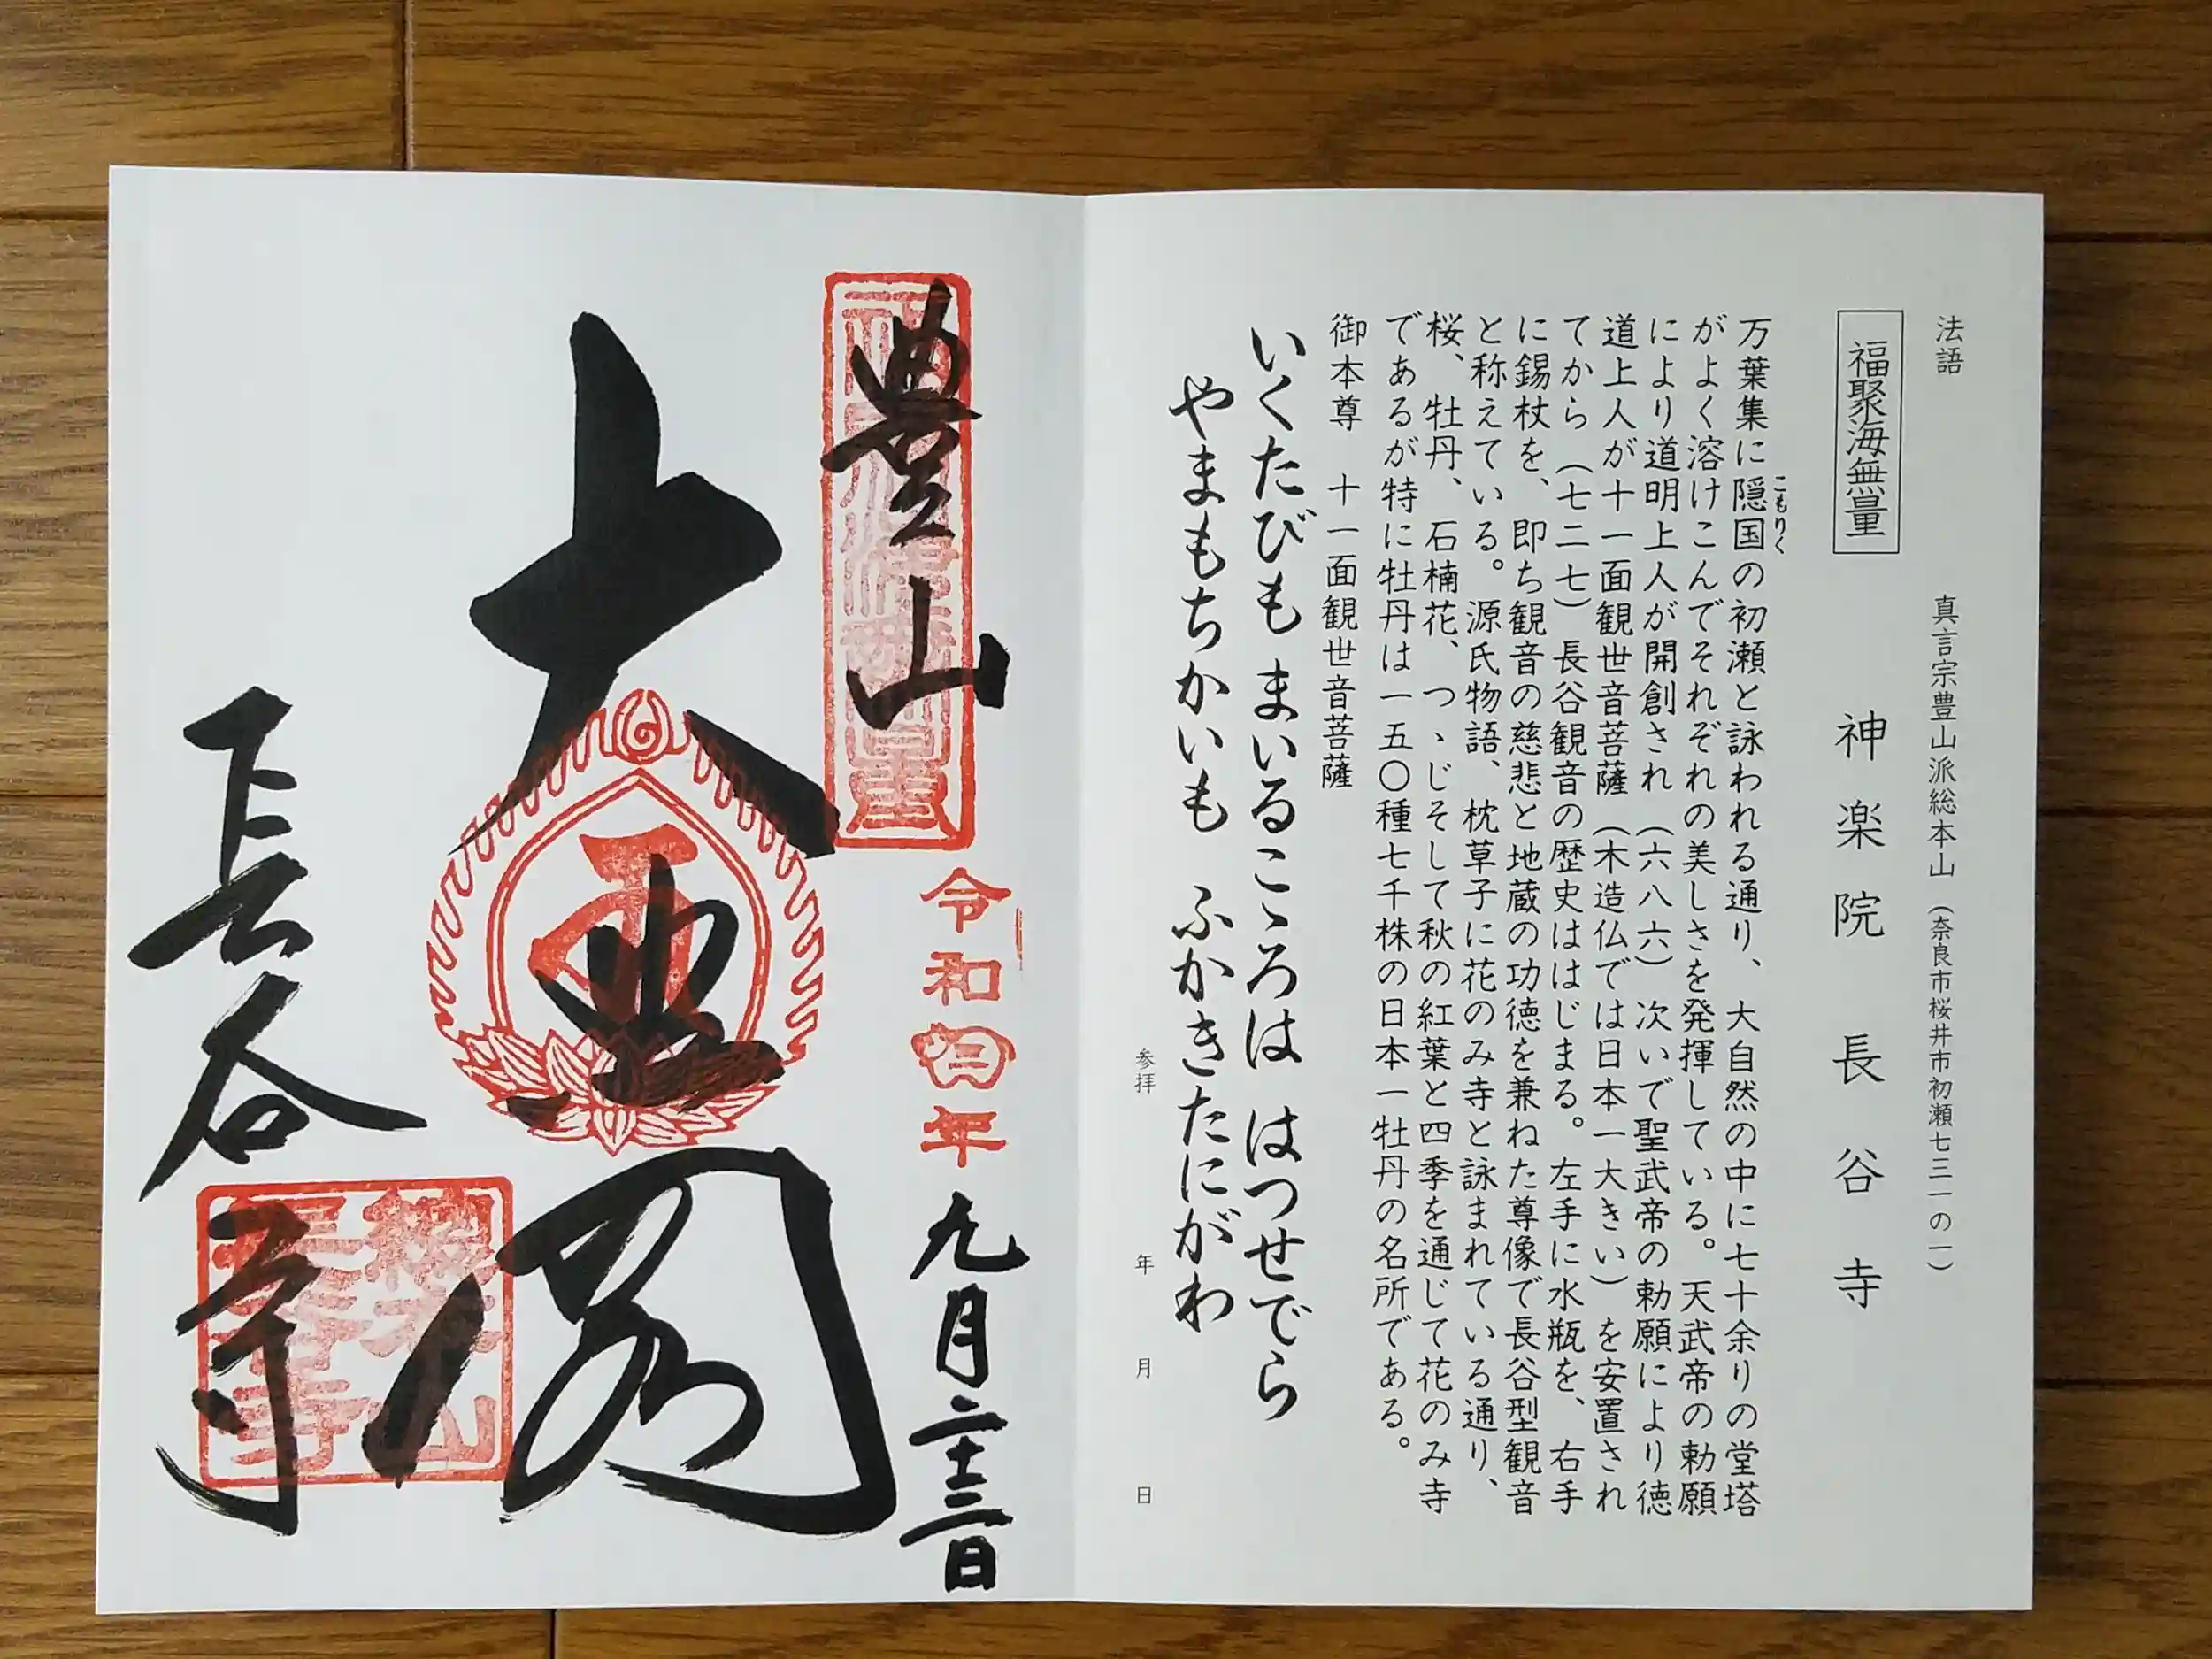 法語
真言宗豊山派総本山（奈良市桜井市初瀬七三一の一）
福聚海無量
神楽院 長谷寺
万葉集に隠国の初瀬と詠われる通り、大自然の中に七十余りの堂塔
こもりく
がよく溶けこんでそれぞれの美しさを発揮している。天武帝の勅願
により道明上人が開創され（六八六）次いで聖武帝の勅願により徳
道上人が十一面観世音菩薩（木造仏では日本一大きい）を安置され
てから（七二七）長谷観音の歴史ははじまる。左手に水瓶を、右手
に錫杖を、即ち観音の慈悲と地蔵の功徳を兼ねた尊像で長谷型観音
と称えている。源氏物語、枕草子に花のみ寺と詠まれている通り、
桜、牡丹、石楠花、つヽじそして秋の紅葉と四季を通じて花のみ寺
であるが特に牡丹は一五〇種七千株の日本一牡丹の名所である。
御本尊 十一面観世音菩薩
いくたびも まいるこゝろは はつせでら
やまもちかいも ふかきたにがわ
参拝 年 月 日
豊山
令和四年九月二十三日
大悲閣
長谷寺